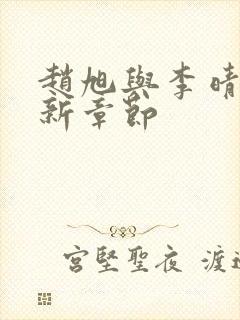 趙旭與李晴
新章節
宮堅聖夜 渡邊